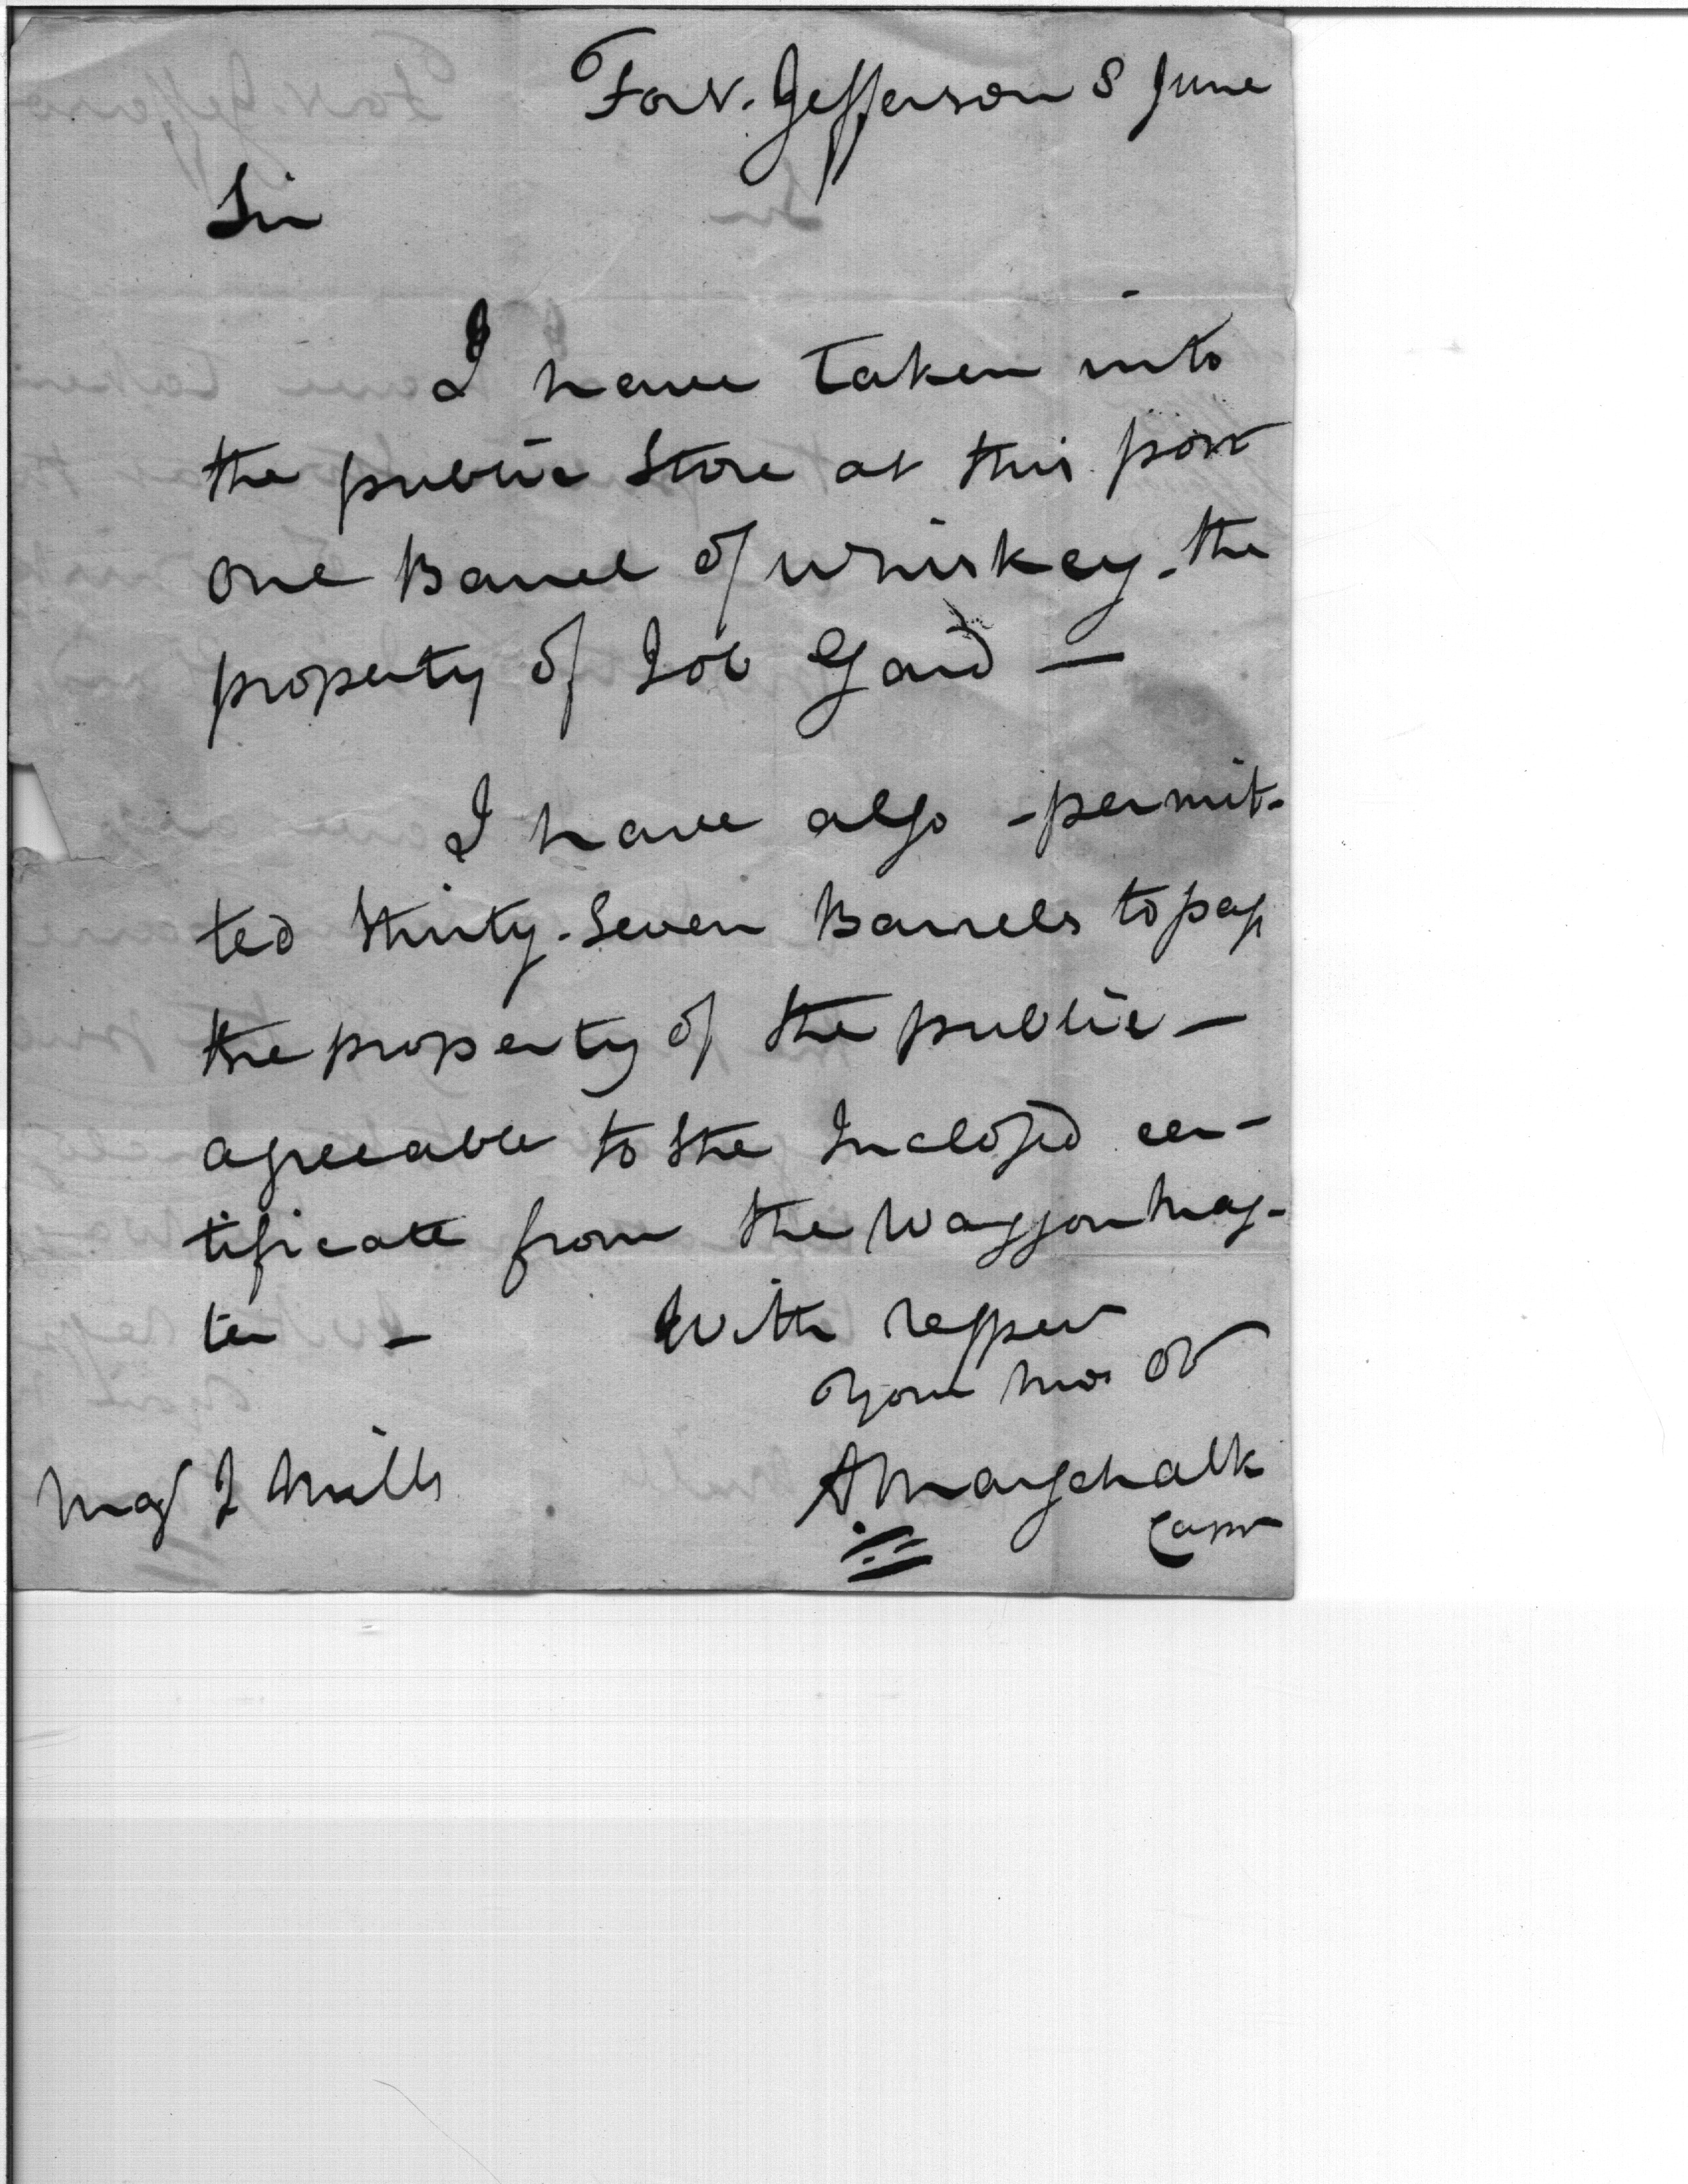 Fort. Jefferson 8 June
Sir
I have taken into
the public Store at this post
one Barrel of Whiskey. the
property of Job Gard —
I have also - permit-
ted thirty-Seven Barrels to pass
the property of the public —
agreeable to the Inclosed cer-
tificate from the Waggon Mas-
ter — With respect
Your Mos Ob
Maj J Mills A Marschalk
Capt